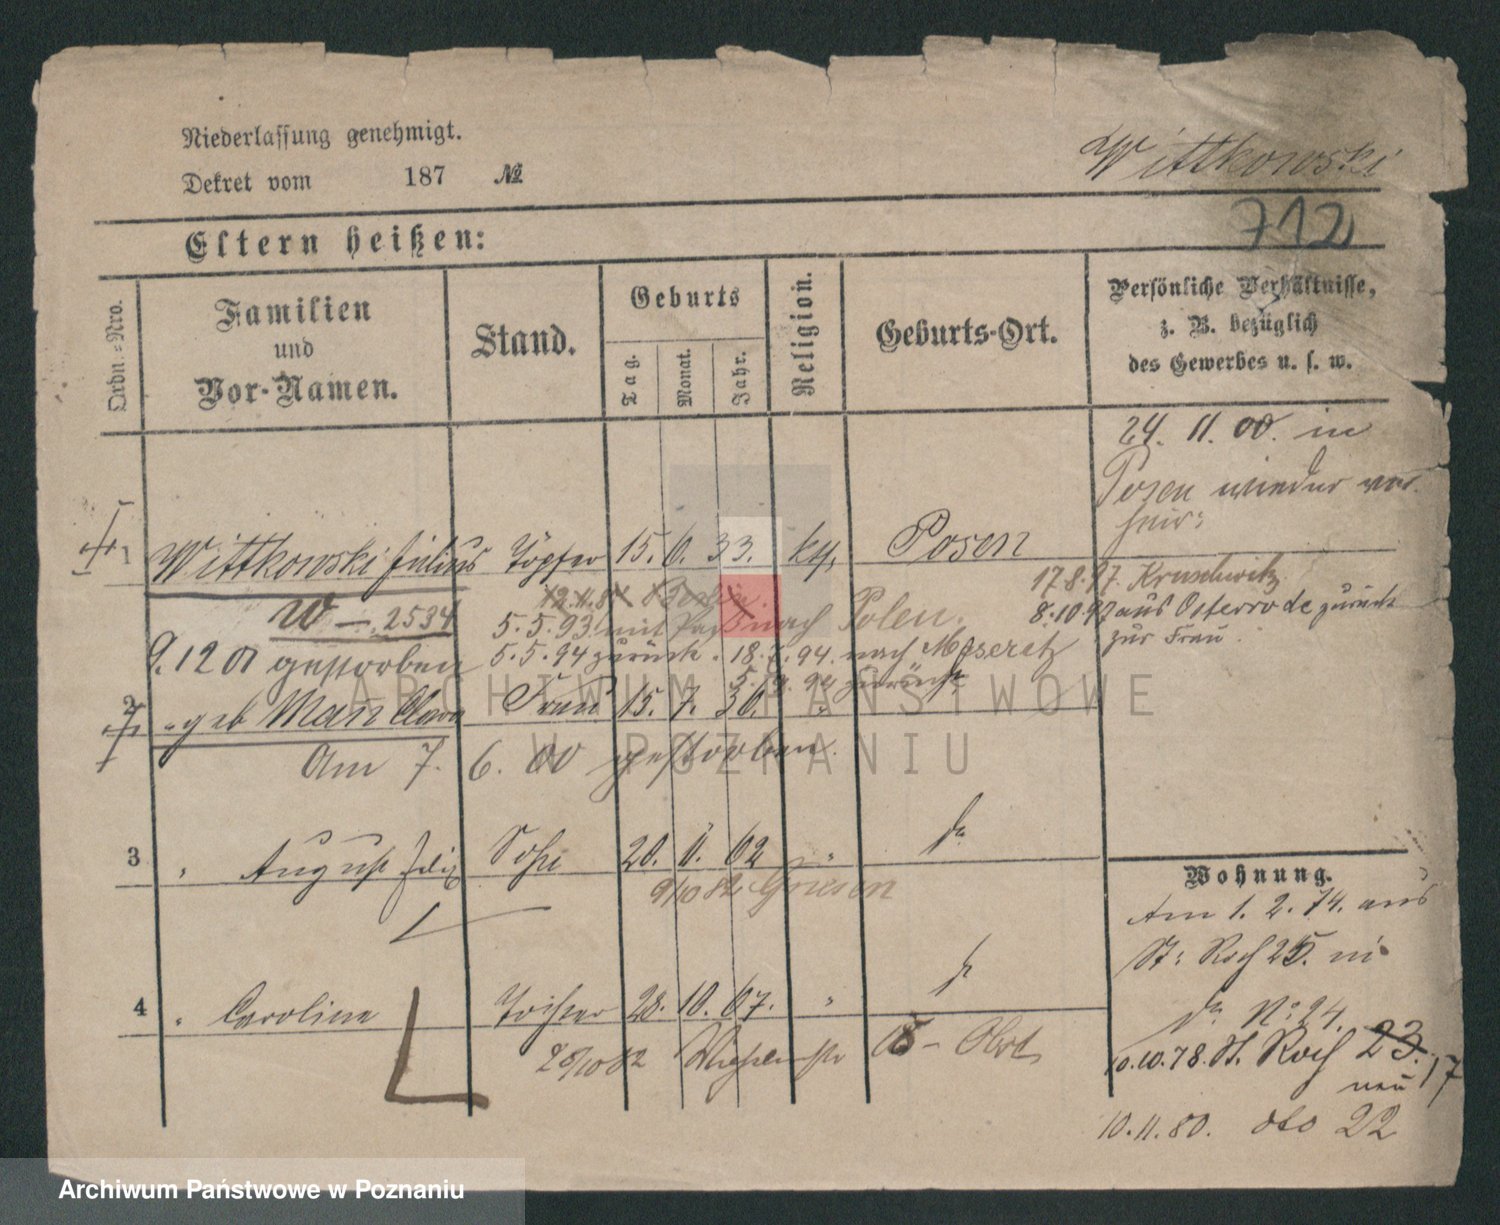 Niederlassung genehmigt.
Dekret vom 187 №
Wittkowski
712
Eltern heißen:
Ordn.-Nro.
Familien
und
Vor-Namen.
Stand.
Geburts
Tag.
Monat.
Jahr.
Religion.
Geburts-Ort.
Persönliche Verhältnisse,
z. B. bezüglich
des Gewerbes u. s. w.
24. 11. 00. in
Posen wieder
1 Wittkowski Julius Töpfer 15. 6. 33. Posen
12.11.84 Berlin
17.8.97. Kruschwitz
W - 2534
5.5.93 mit Pass nach Polen.
8.10.97 aus Osterrode zurück
zur Frau.
9.12 01 gestorben
5.5.94 zurück. 18.7.94. nach Meseretz
zurück
2 " geb Man Clara Frau 15. 7. 30. "
Am 7. 6. 00 gestorben.
3 " August Felix Sohn 20. 8. 62 " do
9/10 82 Griesen
Wohnung.
Am 1. 2. 74. aus
St: Roch 25. in
4 " Caroline Tochter 28. 10. 67. " do
do No: 24.
25/10 82 18 -
10.10.78. St. Roch 23.
neu 17
10.11.80. dto 22
ARCHIWUM PAŃSTWOWE
W POZNANIU
Archiwum Państwowe w Poznaniu